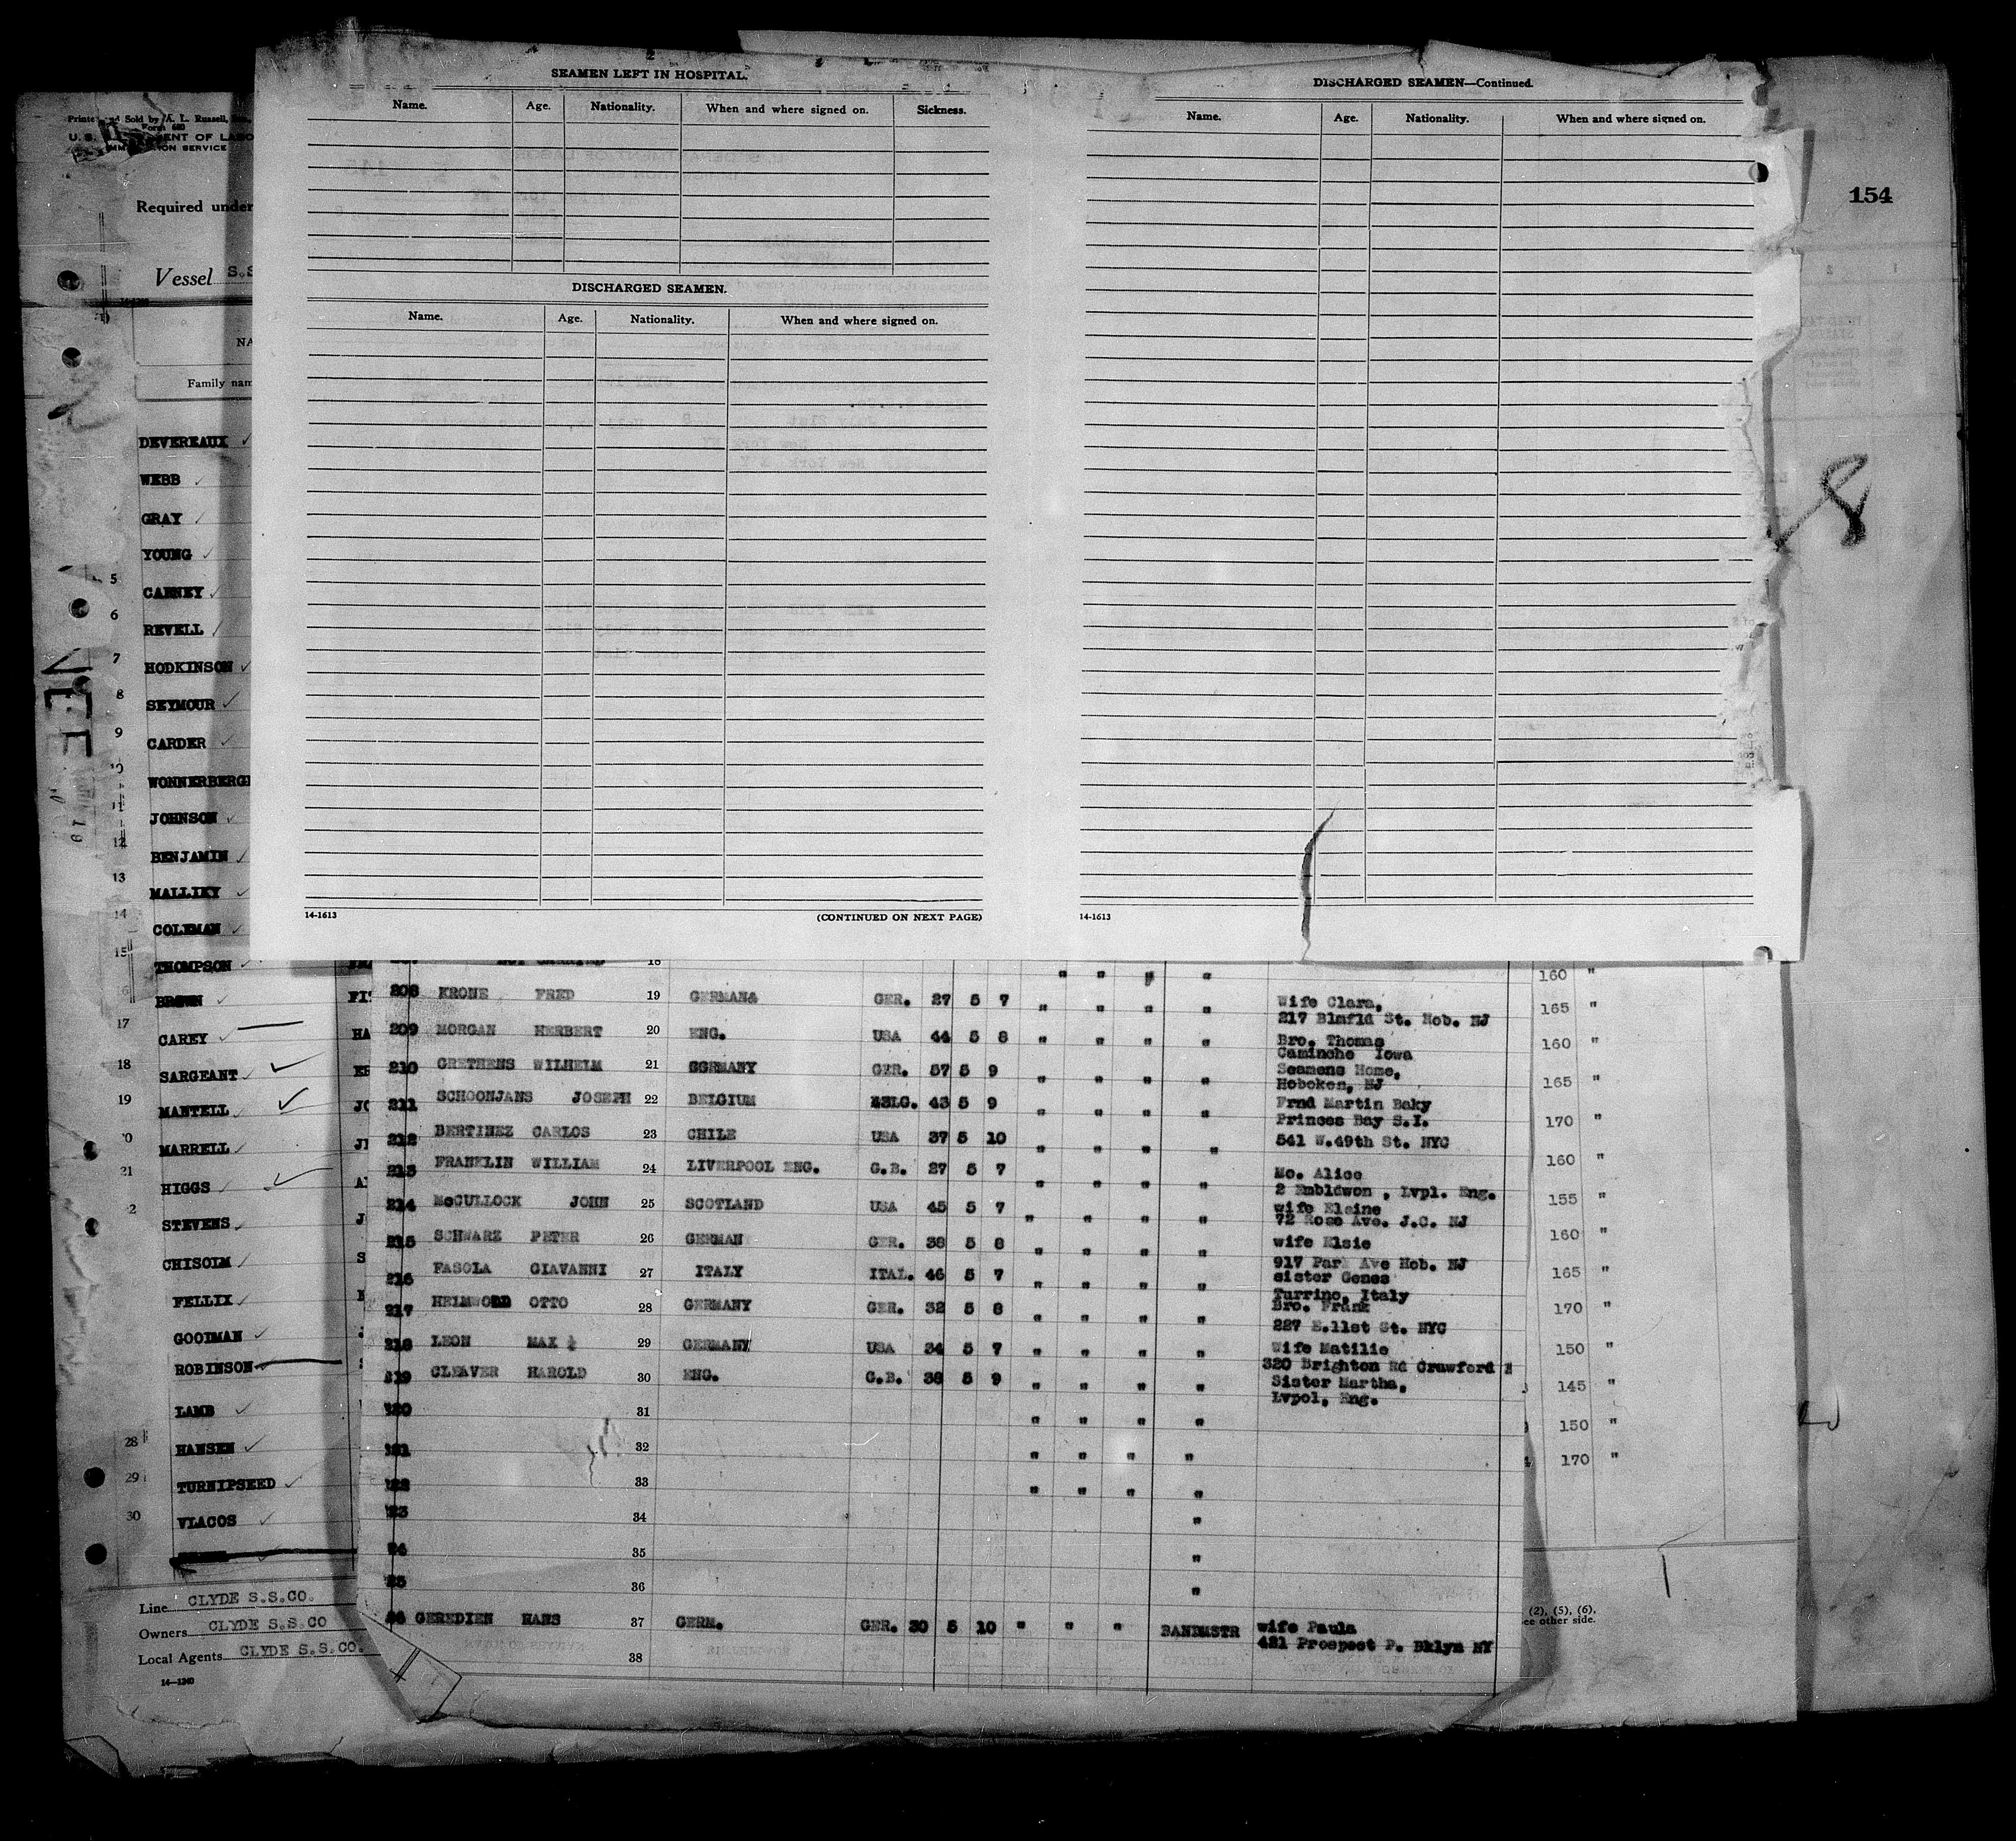 SEAMEN LEFT IN HOSPITAL.
Name. Age. Nationality. When and where signed on. Sickness.
DISCHARGED SEAMEN.
Name. Age. Nationality. When and where signed on.
14-1613 (CONTINUED ON NEXT PAGE)
DISCHARGED SEAMEN—Continued.
Name. Age. Nationality. When and where signed on.
14-1613
154
8
Sold by A. L. Russell,
Form 680
U.S. ENT OF LABO
ION SERVICE
Required under
Vessel S.S
NA
Family nam
DEVEREAUX
WEBB
GRAY
YOUNG
5 CARNEY
6 REVELL
7 HODKINSON
8 SEYMOUR
9 CARDER
10 WONNERBERG
11 JOHNSON
12 BENJAMIN
13 MALLIKY
14 COLEMAN
15 THOMPSON
BROWN
17 CAREY HA
18 SARGEANT
19 MANTELL
MARRELL
21 HIGGS
2 STEVENS
CHISOLM
FELLIX
GOODMAN
ROBINSON
LAMB
28 HANSEN
29 TURNIPSEED
30 VLACOS
Line CLYDE S.S.CO.
Owners CLYDE S.S.CO
Local Agents CLYDE S.S.CO.
14-1240
18 " " " " 160 "
208 KRONE FRED 19 GERMANA GER. 27 5 7 " " " " Wife Clara, 165 "
217 Blmfld St. Hob. NJ
209 MORGAN HERBERT 20 ENG. USA 44 5 8 " " " " Bro. Thomas 160 "
Caminche Iowa
210 GRETHENS WILHELM 21 GGRMANY GER. 57 5 9 " " " " Seamens Home, 165 "
Hoboken, NJ
211 SCHOONJANS JOSEPH 22 BELGIUM BELG. 43 5 9 " " " " Frnd Martin Baky 170 "
Princes Bay S.I.
212 BERTINEZ CARLOS 23 CHILE USA 37 5 10 " " " " 541 W.49th St. NYC 160 "
213 FRANKLIN WILLIAM 24 LIVERPOOL ENG. G.B. 27 5 7 " " " " Mo. Alice
2 Embldwon , Lvpl. Eng. 155 "
214 McCULLOCK JOHN 25 SCOTLAND USA 45 5 7 " " " " wife Elaine
72 Rose Ave. J.C. NJ
215 SCHWARZ PETER 26 GERMAN GER. 38 5 8 " " " " wife Elsie 160 "
917 Park Ave Hob. NJ
216 FASOLA GIAVANNI 27 ITALY ITAL. 46 5 7 " " " " sister Genes 165 "
Turrino, Italy
217 HEIMWORD OTTO 28 GERMANY GER. 32 5 8 " " " " Bro. Frank 170 "
227 E.11st St. NYC
218 LEON MAX 29 GERMANY USA 34 5 7 " " " " Wife Matilie 150 "
320 Brighton Rd Crawford
219 CLEAVER HAROLD 30 ENG. G.B. 38 5 9 " " " " Sister Martha, 145 "
Lvpol, Eng.
31 " " " " 150 "
32 " " " " 170 "
33 " " " "
34 "
35 "
36 "
GEREDIEN HANS 37 GERM. GER. 30 5 10 " " " BANDMSTR wife Paula
421 Prospect P. Bklyn NY
38
(2), (5), (6).
ee other side.